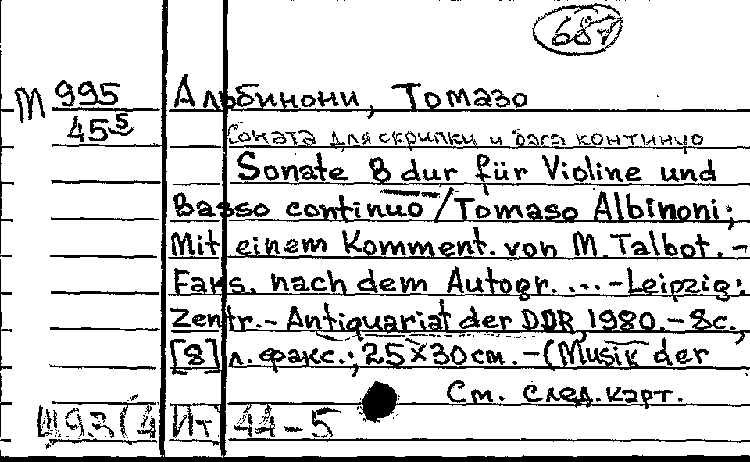 687
М 995
45⁵
Альбинони, Томазо
Соната для скрипки и баса континуо
Sonate B dur für Violine und
Basso continuo / Tomaso Albinoni;
Mit einem Komment. von M. Talbot. -
Faks. nach dem Autogr. ... - Leipzig:
Zentr. - Antiquariat der DDR, 1980. - 8 с.,
[8] л. факс.; 25 X 30 см. - (Musik der
См. след. карт.
Щ93(4Ит) 44-5